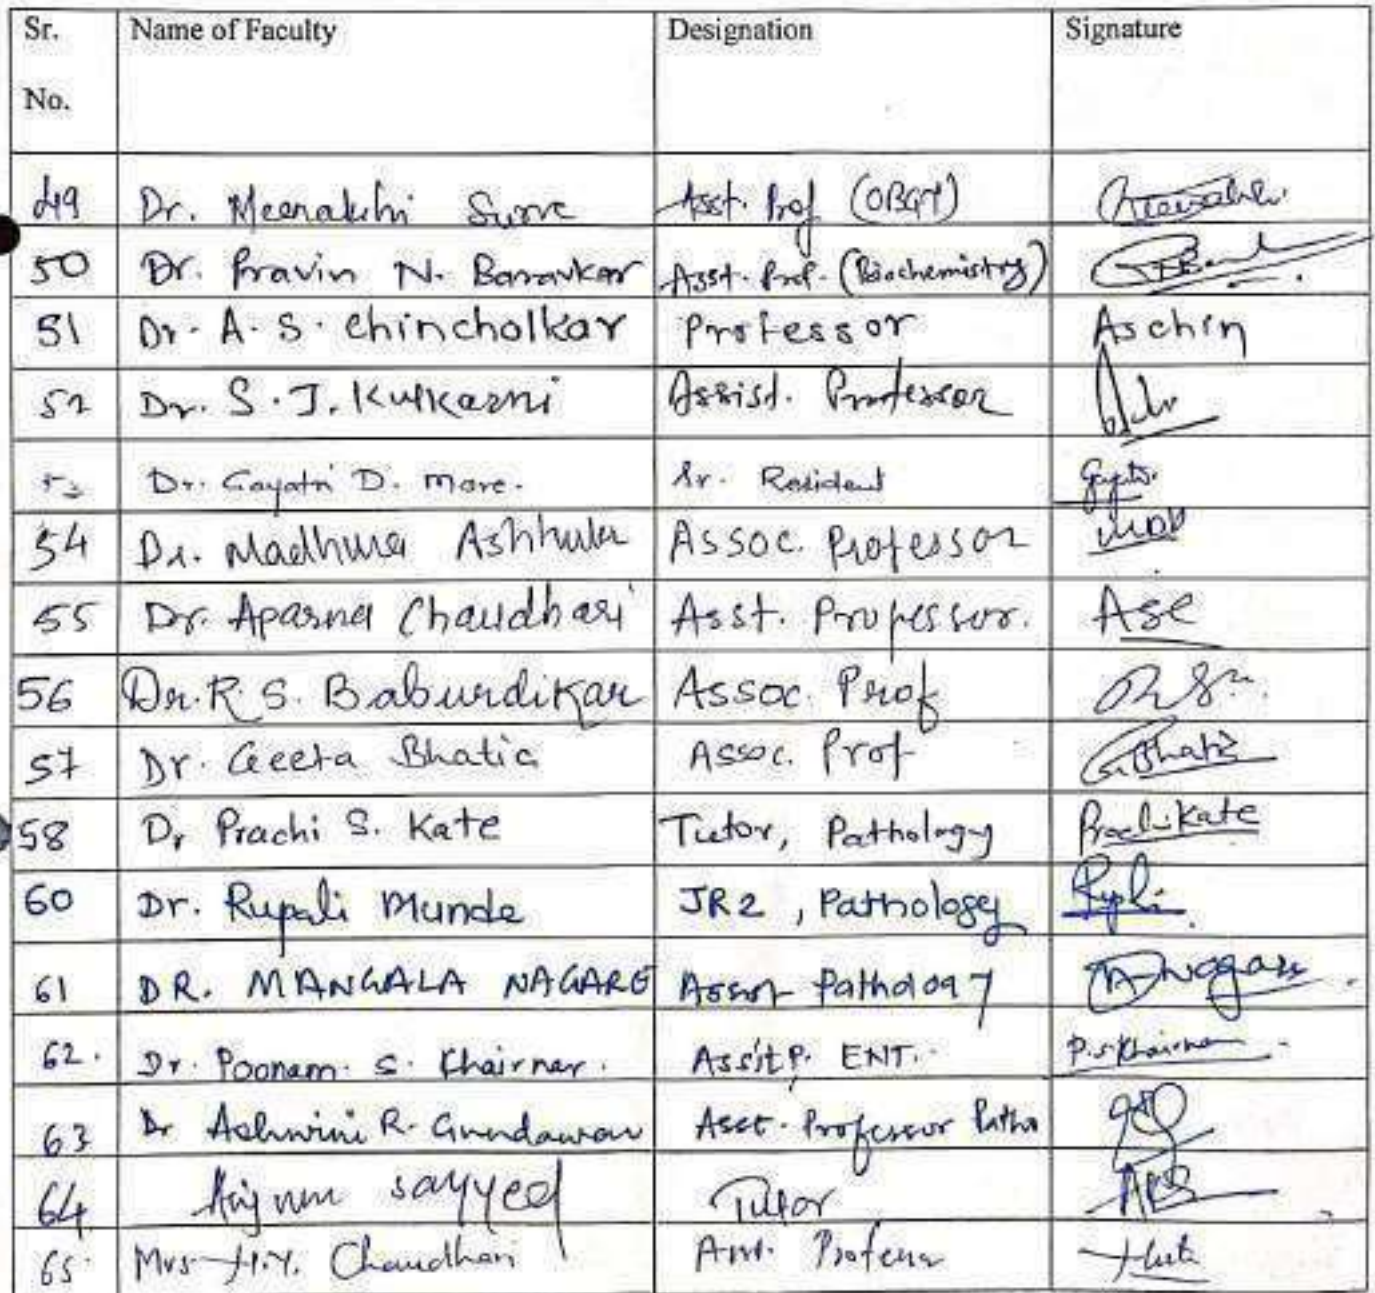 Sr. No. Name of Faculty Designation Signature
49 Dr. Meenakshi Surve Asst. Prof (OBGY)
50 Dr. Pravin N. Baravkar Asst. Prof. (Biochemistry)
51 Dr. A. S. Chincholkar Professor Aschin
52 Dr. S. J. Kulkarni Assist. Professor
53 Dr. Gayatri D. More. Sr. Resident
54 Dr. Madhura Assoc. Professor
55 Dr. Aparna Chaudhari Asst. Professor. Asc
56 Dr. R. S. Baburdikar Assoc. Prof
57 Dr. Geeta Bhatia Assoc. Prof GBhatia
58 Dr Prachi S. Kate Tutor, Pathology Prachi Kate
60 Dr. Rupali Munde JR2, Pathology
61 DR. MANGALA NAGARE Pathology Nagare
62. Dr. Poonam. S. Khairnar. Assit P. ENT. P.S Khairnar
63 Dr Ashwini R. Asst. Professor Patho
64 Sayyed Tutor
65. Mrs H.Y. Chaudhari Asst. Professor